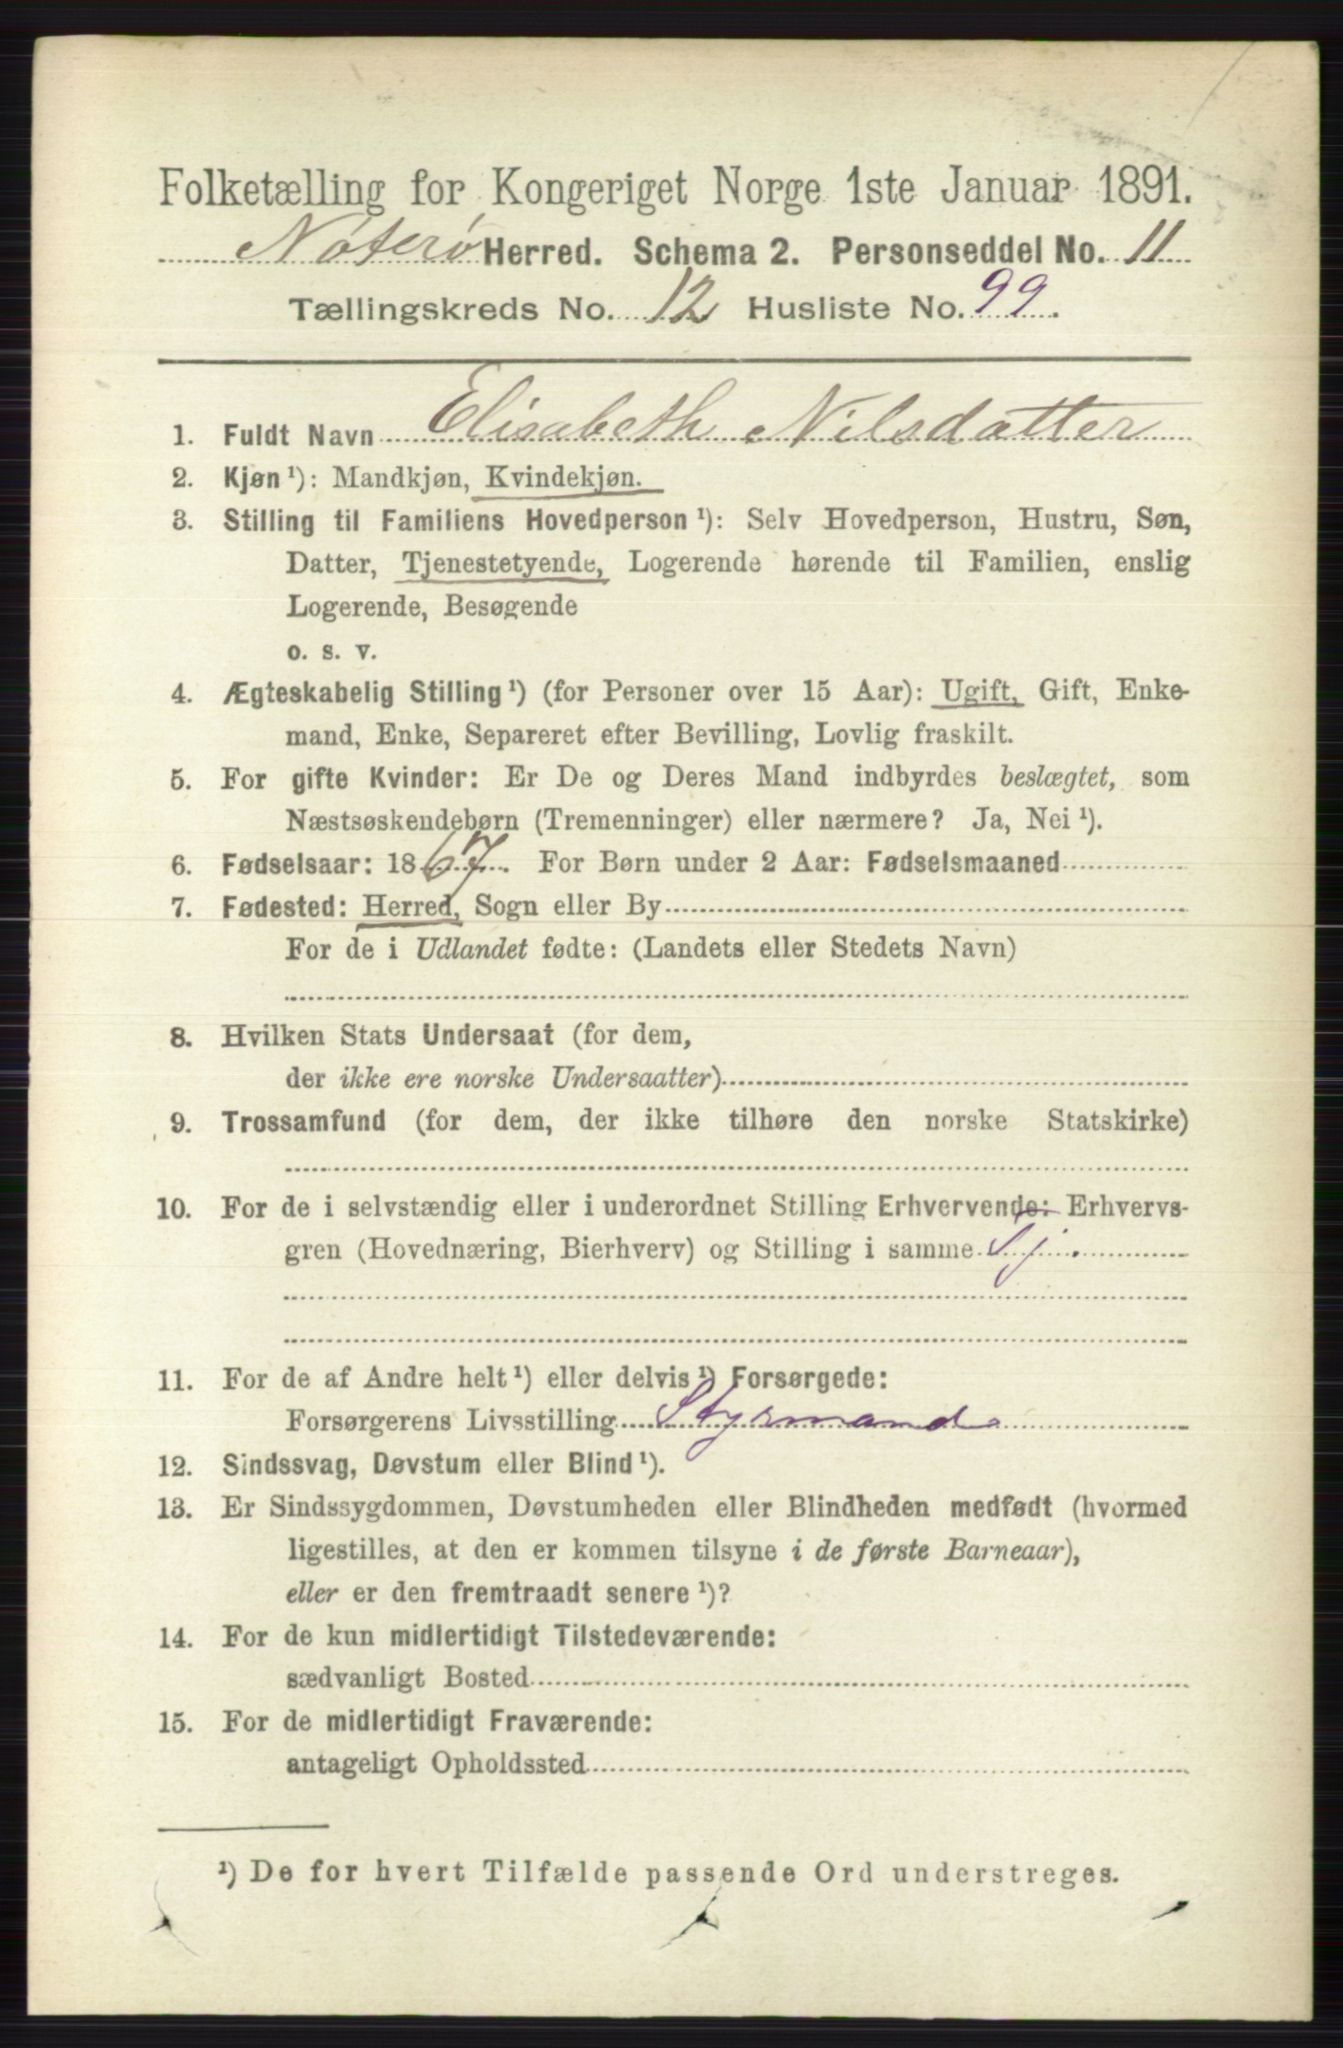 Folketælling for Kongeriget Norge 1ste Januar 1891.
Nøterø Herred. Schema 2. Personseddel No. 11
Tællingskreds No. 12 Husliste No. 99.
1. Fuldt Navn Elisabeth Nilsdatter
2. Kjøn ¹): Mandkjøn, Kvindekjøn.
3. Stilling til Familiens Hovedperson ¹): Selv Hovedperson, Hustru, Søn,
Datter, Tjenestetyende, Logerende hørende til Familien, enslig
Logerende, Besøgende
o. s. v.
4. Ægteskabelig Stilling ¹) (for Personer over 15 Aar): Ugift, Gift, Enke-
mand, Enke, Separeret efter Bevilling, Lovlig fraskilt.
5. For gifte Kvinder: Er De og Deres Mand indbyrdes beslægtet, som
Næstsøskendebørn (Tremenninger) eller nærmere? Ja, Nei ¹).
6. Fødselsaar: 1867. For Børn under 2 Aar: Fødselsmaaned
7. Fødested: Herred, Sogn eller By
For de i Udlandet fødte: (Landets eller Stedets Navn)
8. Hvilken Stats Undersaat (for dem,
der ikke ere norske Undersaatter)
9. Trossamfund (for dem, der ikke tilhøre den norske Statskirke)
10. For de i selvstændig eller i underordnet Stilling Erhvervende: Erhvervs-
gren (Hovednæring, Bierhverv) og Stilling i samme Tj.
11. For de af Andre helt ¹) eller delvis ¹) Forsørgede:
Forsørgerens Livsstilling Styrmand
12. Sindssvag, Døvstum eller Blind ¹).
13. Er Sindssygdommen, Døvstumheden eller Blindheden medfødt (hvormed
ligestilles, at den er kommen tilsyne i de første Barneaar),
eller er den fremtraadt senere ¹)?
14. For de kun midlertidigt Tilstedeværende:
sædvanligt Bosted
15. For de midlertidigt Fraværende:
antageligt Opholdssted
¹) De for hvert Tilfælde passende Ord understreges.